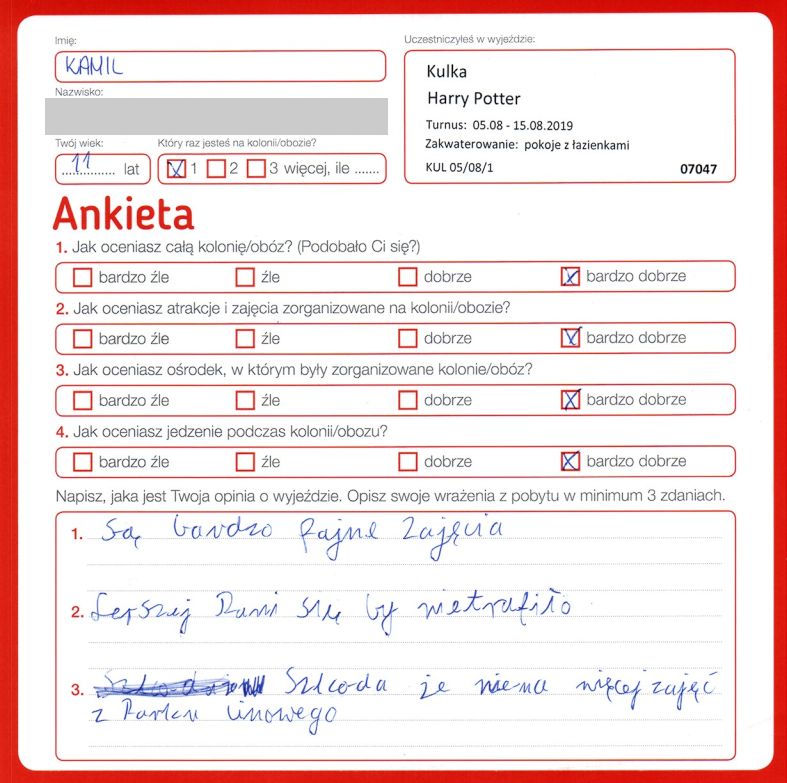 Imię:
KAMIL
Nazwisko:
Twój wiek:
11 lat
Który raz jesteś na kolonii/obozie?
1 2 3 więcej, ile .......
Uczestniczyłeś w wyjeździe:
Kulka
Harry Potter
Turnus: 05.08 - 15.08.2019
Zakwaterowanie: pokoje z łazienkami
KUL 05/08/1 07047
Ankieta
1. Jak oceniasz całą kolonię/obóz? (Podobało Ci się?)
bardzo źle źle dobrze bardzo dobrze
2. Jak oceniasz atrakcje i zajęcia zorganizowane na kolonii/obozie?
bardzo źle źle dobrze bardzo dobrze
3. Jak oceniasz ośrodek, w którym były zorganizowane kolonie/obóz?
bardzo źle źle dobrze bardzo dobrze
4. Jak oceniasz jedzenie podczas kolonii/obozu?
bardzo źle źle dobrze bardzo dobrze
Napisz, jaka jest Twoja opinia o wyjeździe. Opisz swoje wrażenia z pobytu w minimum 3 zdaniach.
1. Są bardzo fajne zajęcia
2. Lepszej Pani się by nietrafiło
3. Szkoda że niema więcej zajęć
z Parku linowego